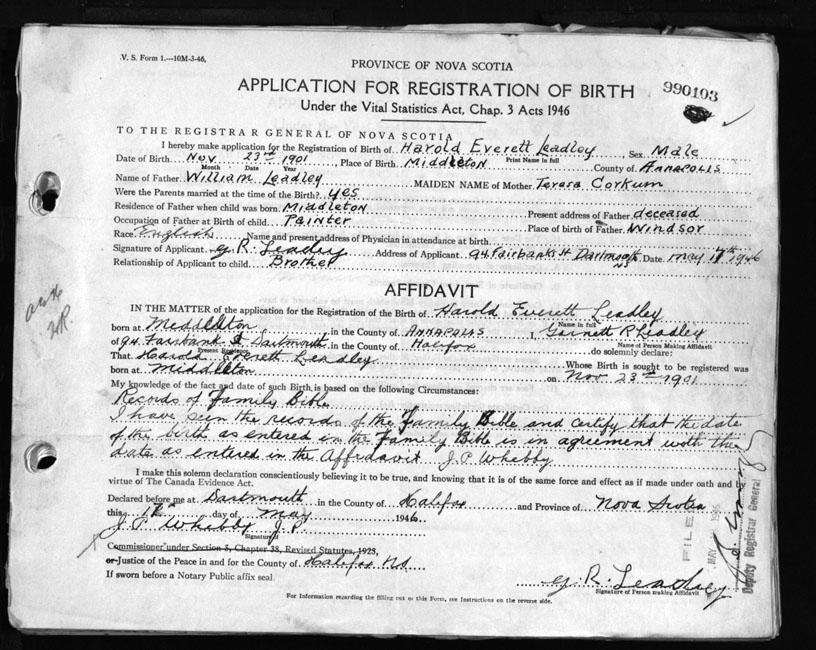 V. S. Form 1.—10M-3-46.
PROVINCE OF NOVA SCOTIA
APPLICATION FOR REGISTRATION OF BIRTH
990103
Under the Vital Statistics Act, Chap. 3 Acts 1946
TO THE REGISTRAR GENERAL OF NOVA SCOTIA
I hereby make application for the Registration of Birth of Harold Everett Leadley, Sex Male
Print Name in full
Date of Birth Nov 23rd 1901, Place of Birth Middleton County of Annapolis
Month Date Year
Name of Father William Leadley MAIDEN NAME of Mother Teresa Corkum
Were the Parents married at the time of the Birth? yes
Residence of Father when child was born Middleton Present address of Father deceased
Occupation of Father at Birth of child Painter Place of birth of Father Windsor
Race English Name and present address of Physician in attendance at birth
Signature of Applicant G. R. Leadley Address of Applicant 94 Fairbanks St Dartmouth NS Date May 17th 1946
Relationship of Applicant to child Brother
AFFIDAVIT
IN THE MATTER of the application for the Registration of the Birth of Harold Everett Leadley
Name in full
born at Middleton, in the County of Annapolis I, Garnett R Leadley
Name of Person Making Affidavit
of 94 Fairbank St Dartmouth in the County of Halifax do solemnly declare:
Present Residence
That Harold Everett Leadley Whose Birth is sought to be registered was
born at Middleton on Nov 23rd 1901
My knowledge of the fact and date of such Birth is based on the following Circumstances:
Records of Family Bible
I have seen the records of the Family Bible and certify that the date
of the birth as entered in the Family Bible is in agreement with the
date as entered in the Affidavit J P Whebby
I make this solemn declaration conscientiously believing it to be true, and knowing that it is of the same force and effect as if made under oath and by
virtue of The Canada Evidence Act.
Declared before me at Dartmouth in the County of Halifax and Province of Nova Scotia
this 17th day of May 1946
J. P. Whebby J. P.
Signature
Commissioner under Section 5, Chapter 38, Revised Statutes, 1923,
or Justice of the Peace in and for the County of Halifax NS
If sworn before a Notary Public affix seal
G. R. Leadley
Signature of Person making Affidavit
For Information regarding the filling out of this Form, see Instructions on the reverse side.
FILED
MAY
Deputy Registrar General